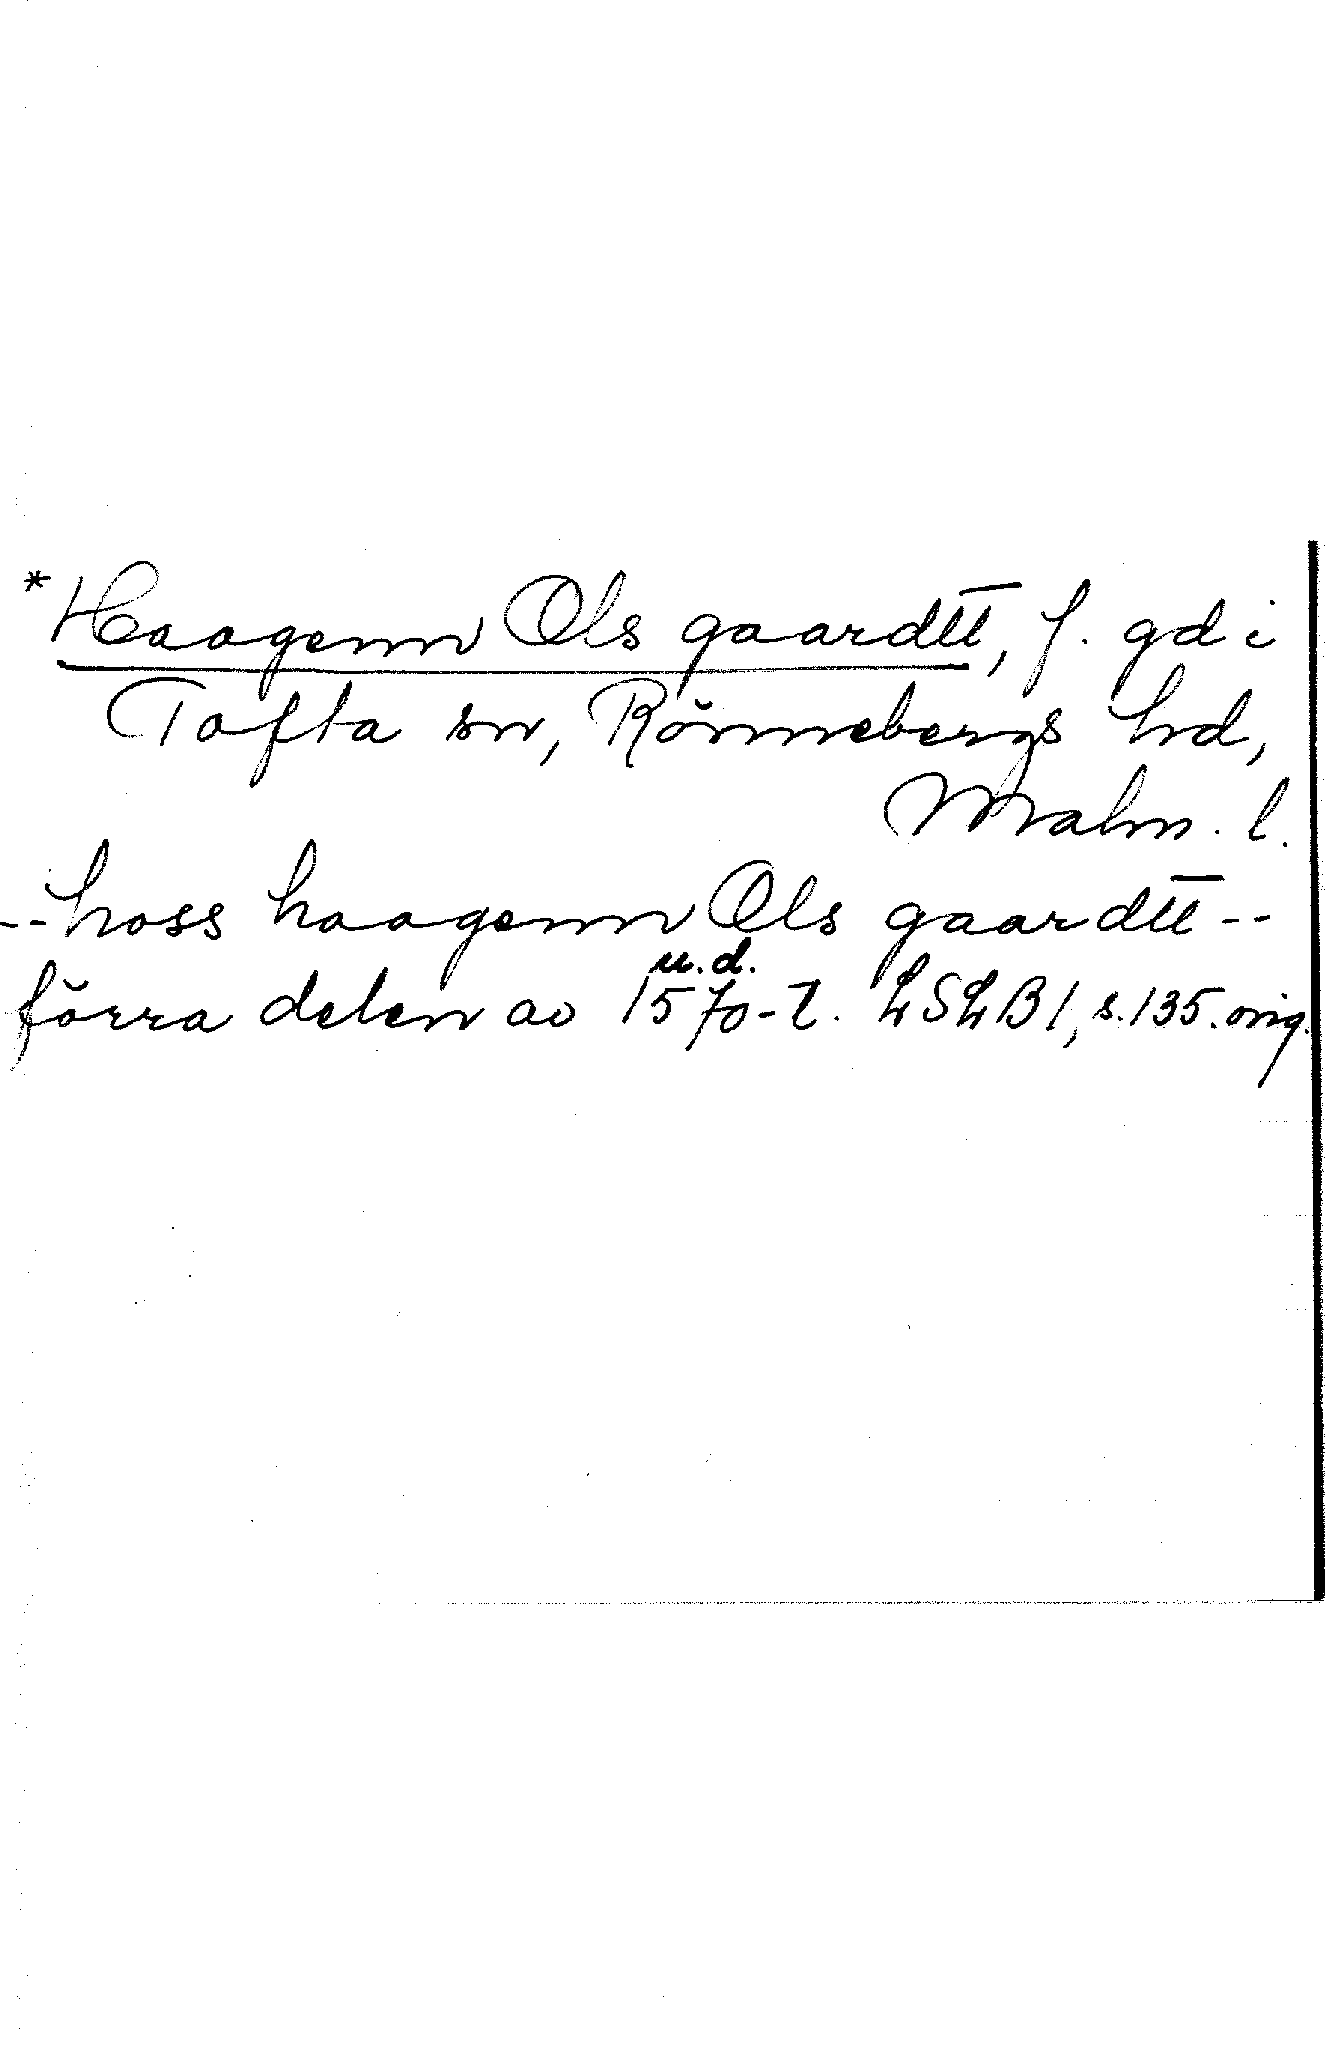 *Haagenn Ols gaardtt, f. gd i
Tofta sn, Rönnebergs hd,
Malm. l.
--hoss haagenn Ols gaardtt--
u.d.
förra delen av 1570-t. LSLB 1, s. 135. orig.